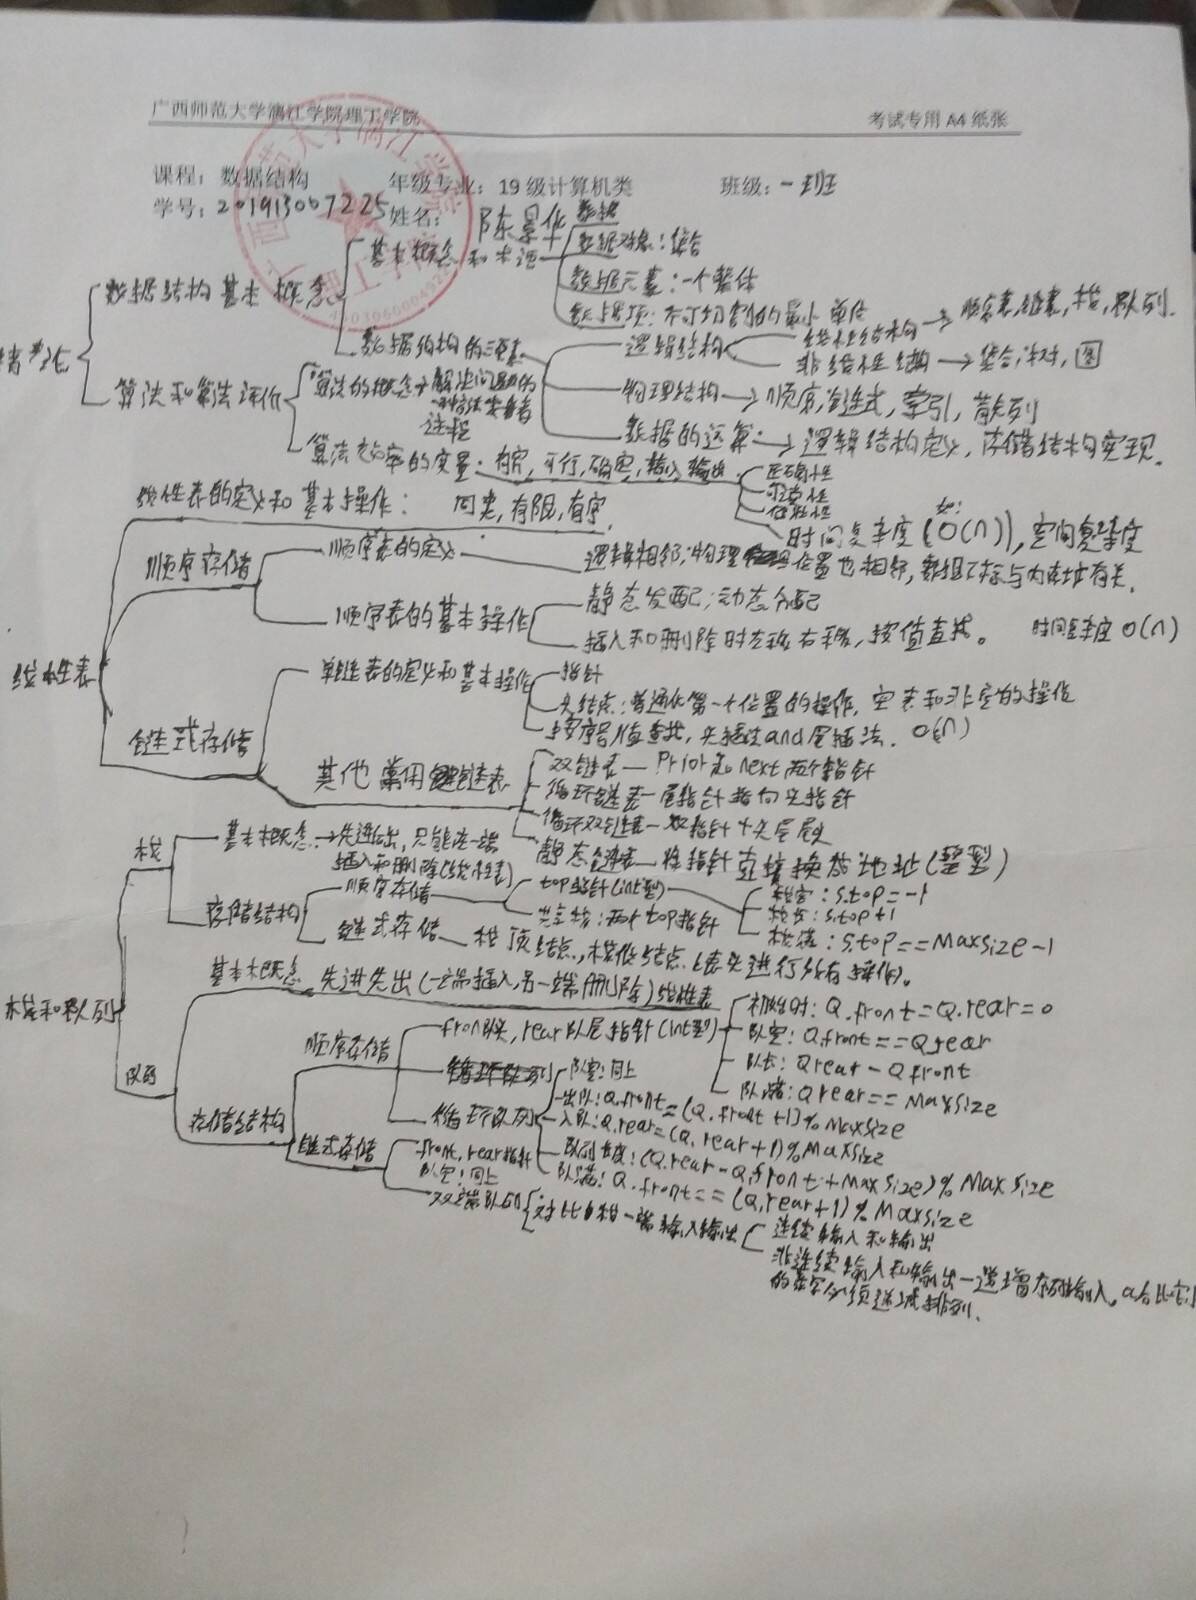 广西师范大学漓江学院理工学院
考试专用 A4 纸张
课程：数据结构 年级专业：19 级计算机类 班级：一班
学号：201913007225 姓名：陈景华
绪论
数据结构基本概念
基本概念和术语
数据
数据对象：集合
数据元素：一个整体
数据项：不可切割的最小单位
数据结构的三要素
逻辑结构
线性结构→顺序表，链表，栈，队列.
非线性结构→集合，树，图
物理结构→顺序，链式，索引，散列
数据的运算：→逻辑结构定义，存储结构实现.
算法和算法评价
算法的概念→解决问题的
过程
算法效率的变量：有穷，可行，确定，输入输出
正确性
可读性
健壮性
时间复杂度（如：O(n)），空间复杂度
线性表
线性表的定义和基本操作：同类，有限，有序.
顺序存储
顺序表的定义
逻辑相邻；物理位置也相邻，数组下标与内存地址有关.
顺序表的基本操作
静态分配；动态分配
插入和删除时左移右移，按值查找。 时间复杂度 O(n)
链式存储
单链表的定义和基本操作
指针
头结点：普通化第一个位置的操作，空表和非空的操作
按序号/值查找，头插法and尾插法. O(n)
其他常用链表
双链表—Prior和next两个指针
循环链表—尾指针指向头指针
循环双链表—双指针+头尾
静态链表—将指针直接换成地址(整型)
栈和队列
栈
基本概念→先进后出，只能在一端
插入和删除(线性表)
存储结构
顺序存储
top指针(int型)
栈空：S.top=-1
栈长：S.top+1
栈满：S.top==MaxSize-1
共享栈：两个top指针
链式存储—栈顶结点，栈底结点.(表头进行所有操作).
队列
基本概念 先进先出(一端插入，另一端删除)线性表
存储结构
顺序存储
front队头，rear队尾指针(int型)
初始时：Q.front=Q.rear=0
队空：Q.front==Q.rear
队长：Q.rear-Q.front
队满：Q.rear==MaxSize
循环队列
队空：同上
出队：Q.front=(Q.front+1)%MaxSize
入队：Q.rear=(Q.rear+1)%MaxSize
队列长度：(Q.rear-Q.front+MaxSize)%MaxSize
队满：Q.front==(Q.rear+1)%MaxSize
链式存储
front,rear指针
队空：同上
双端队列
对比栈一端输入输出
连续输入和输出
非连续输入和输出—递增序列输入，
必须递减排列.